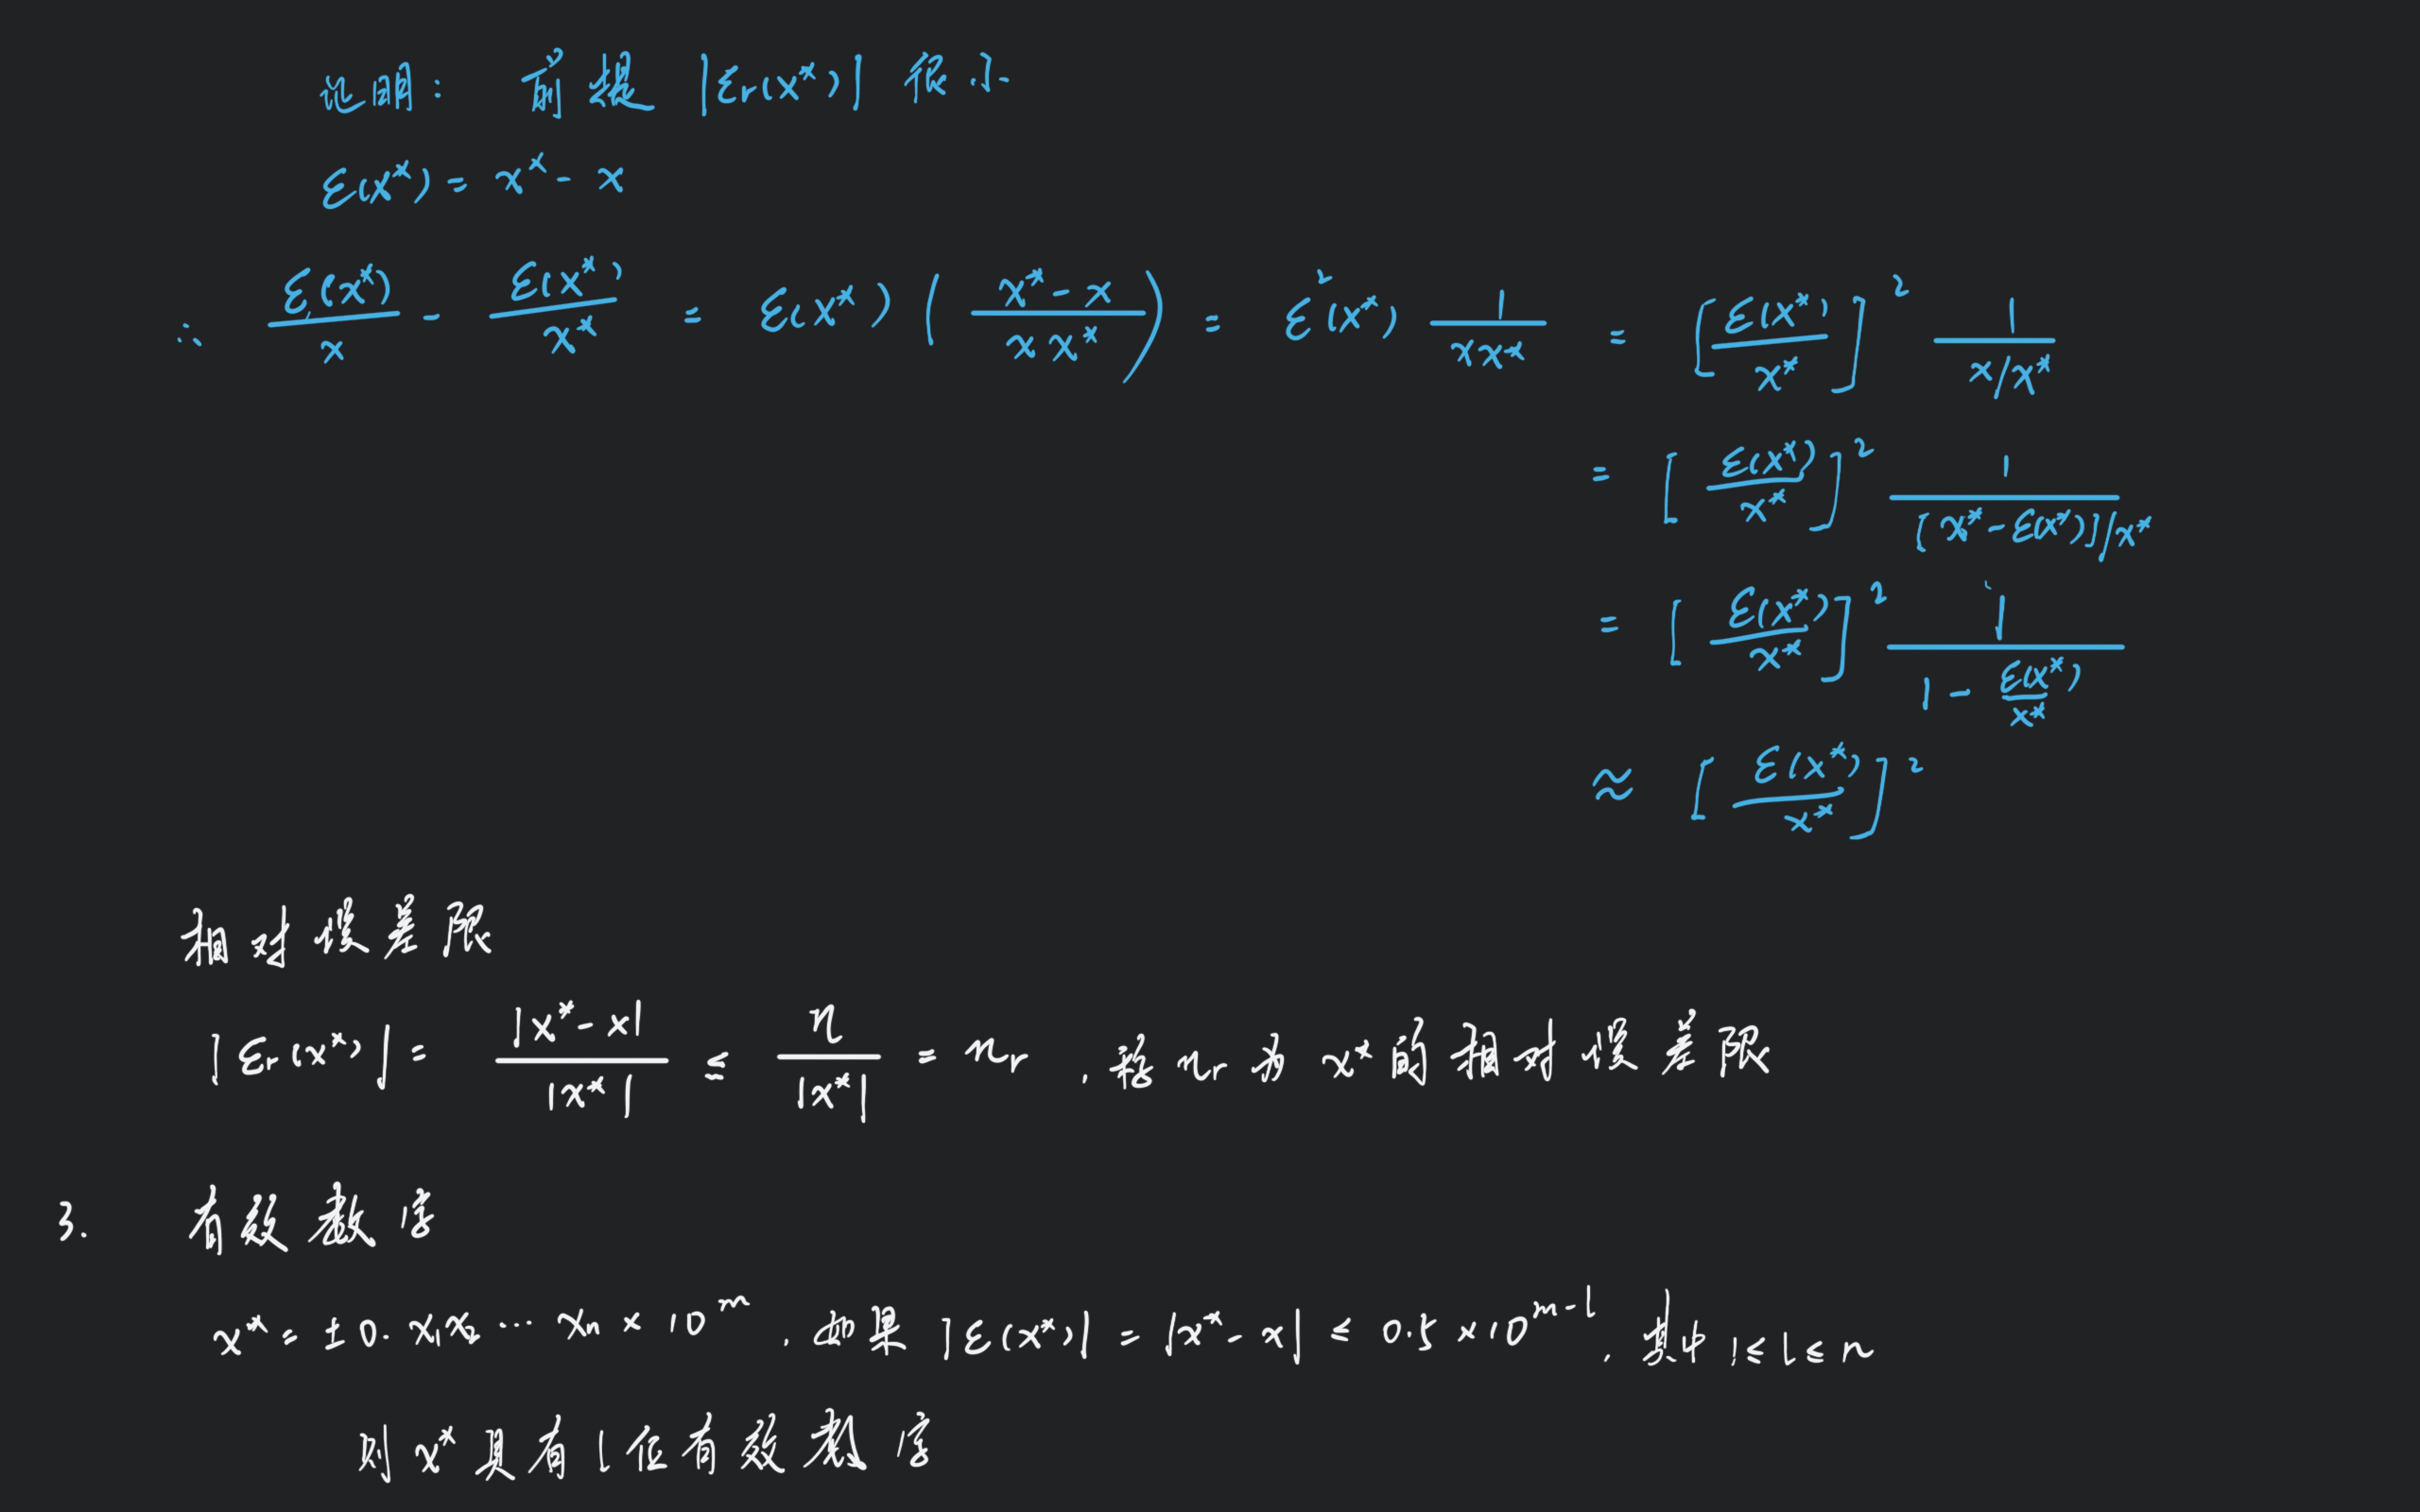 说明: 前提 |εr(x*)| 很小
ε(x*) = x* - x
∴ ε(x*)/x - ε(x*)/x* = ε(x*) ((x* - x)/(x x*)) = ε²(x*) 1/(x x*) = [ε(x*)/x*]² 1/(x/x*)
= [ε(x*)/x*]² 1/([x* - ε(x*)]/x*)
= [ε(x*)/x*]² 1/(1 - ε(x*)/x*)
≈ [ε(x*)/x*]²
相对误差限
|εr(x*)| = |x* - x|/|x*| ≤ η/|x*| = ηr , 称 ηr 为 x* 的相对误差限
3. 有效数字
x* = ±0.x₁x₂…xₙ × 10^m , 如果 |ε(x*)| = |x* - x| ≤ 0.5 × 10^(m-l) , 其中 1 ≤ l ≤ n
则 x* 具有 l 位有效数字